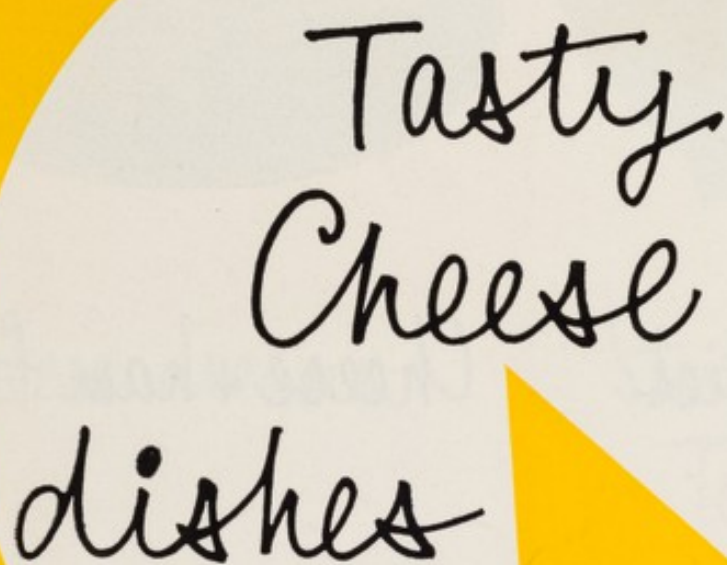 Tasty
Cheese
dishes